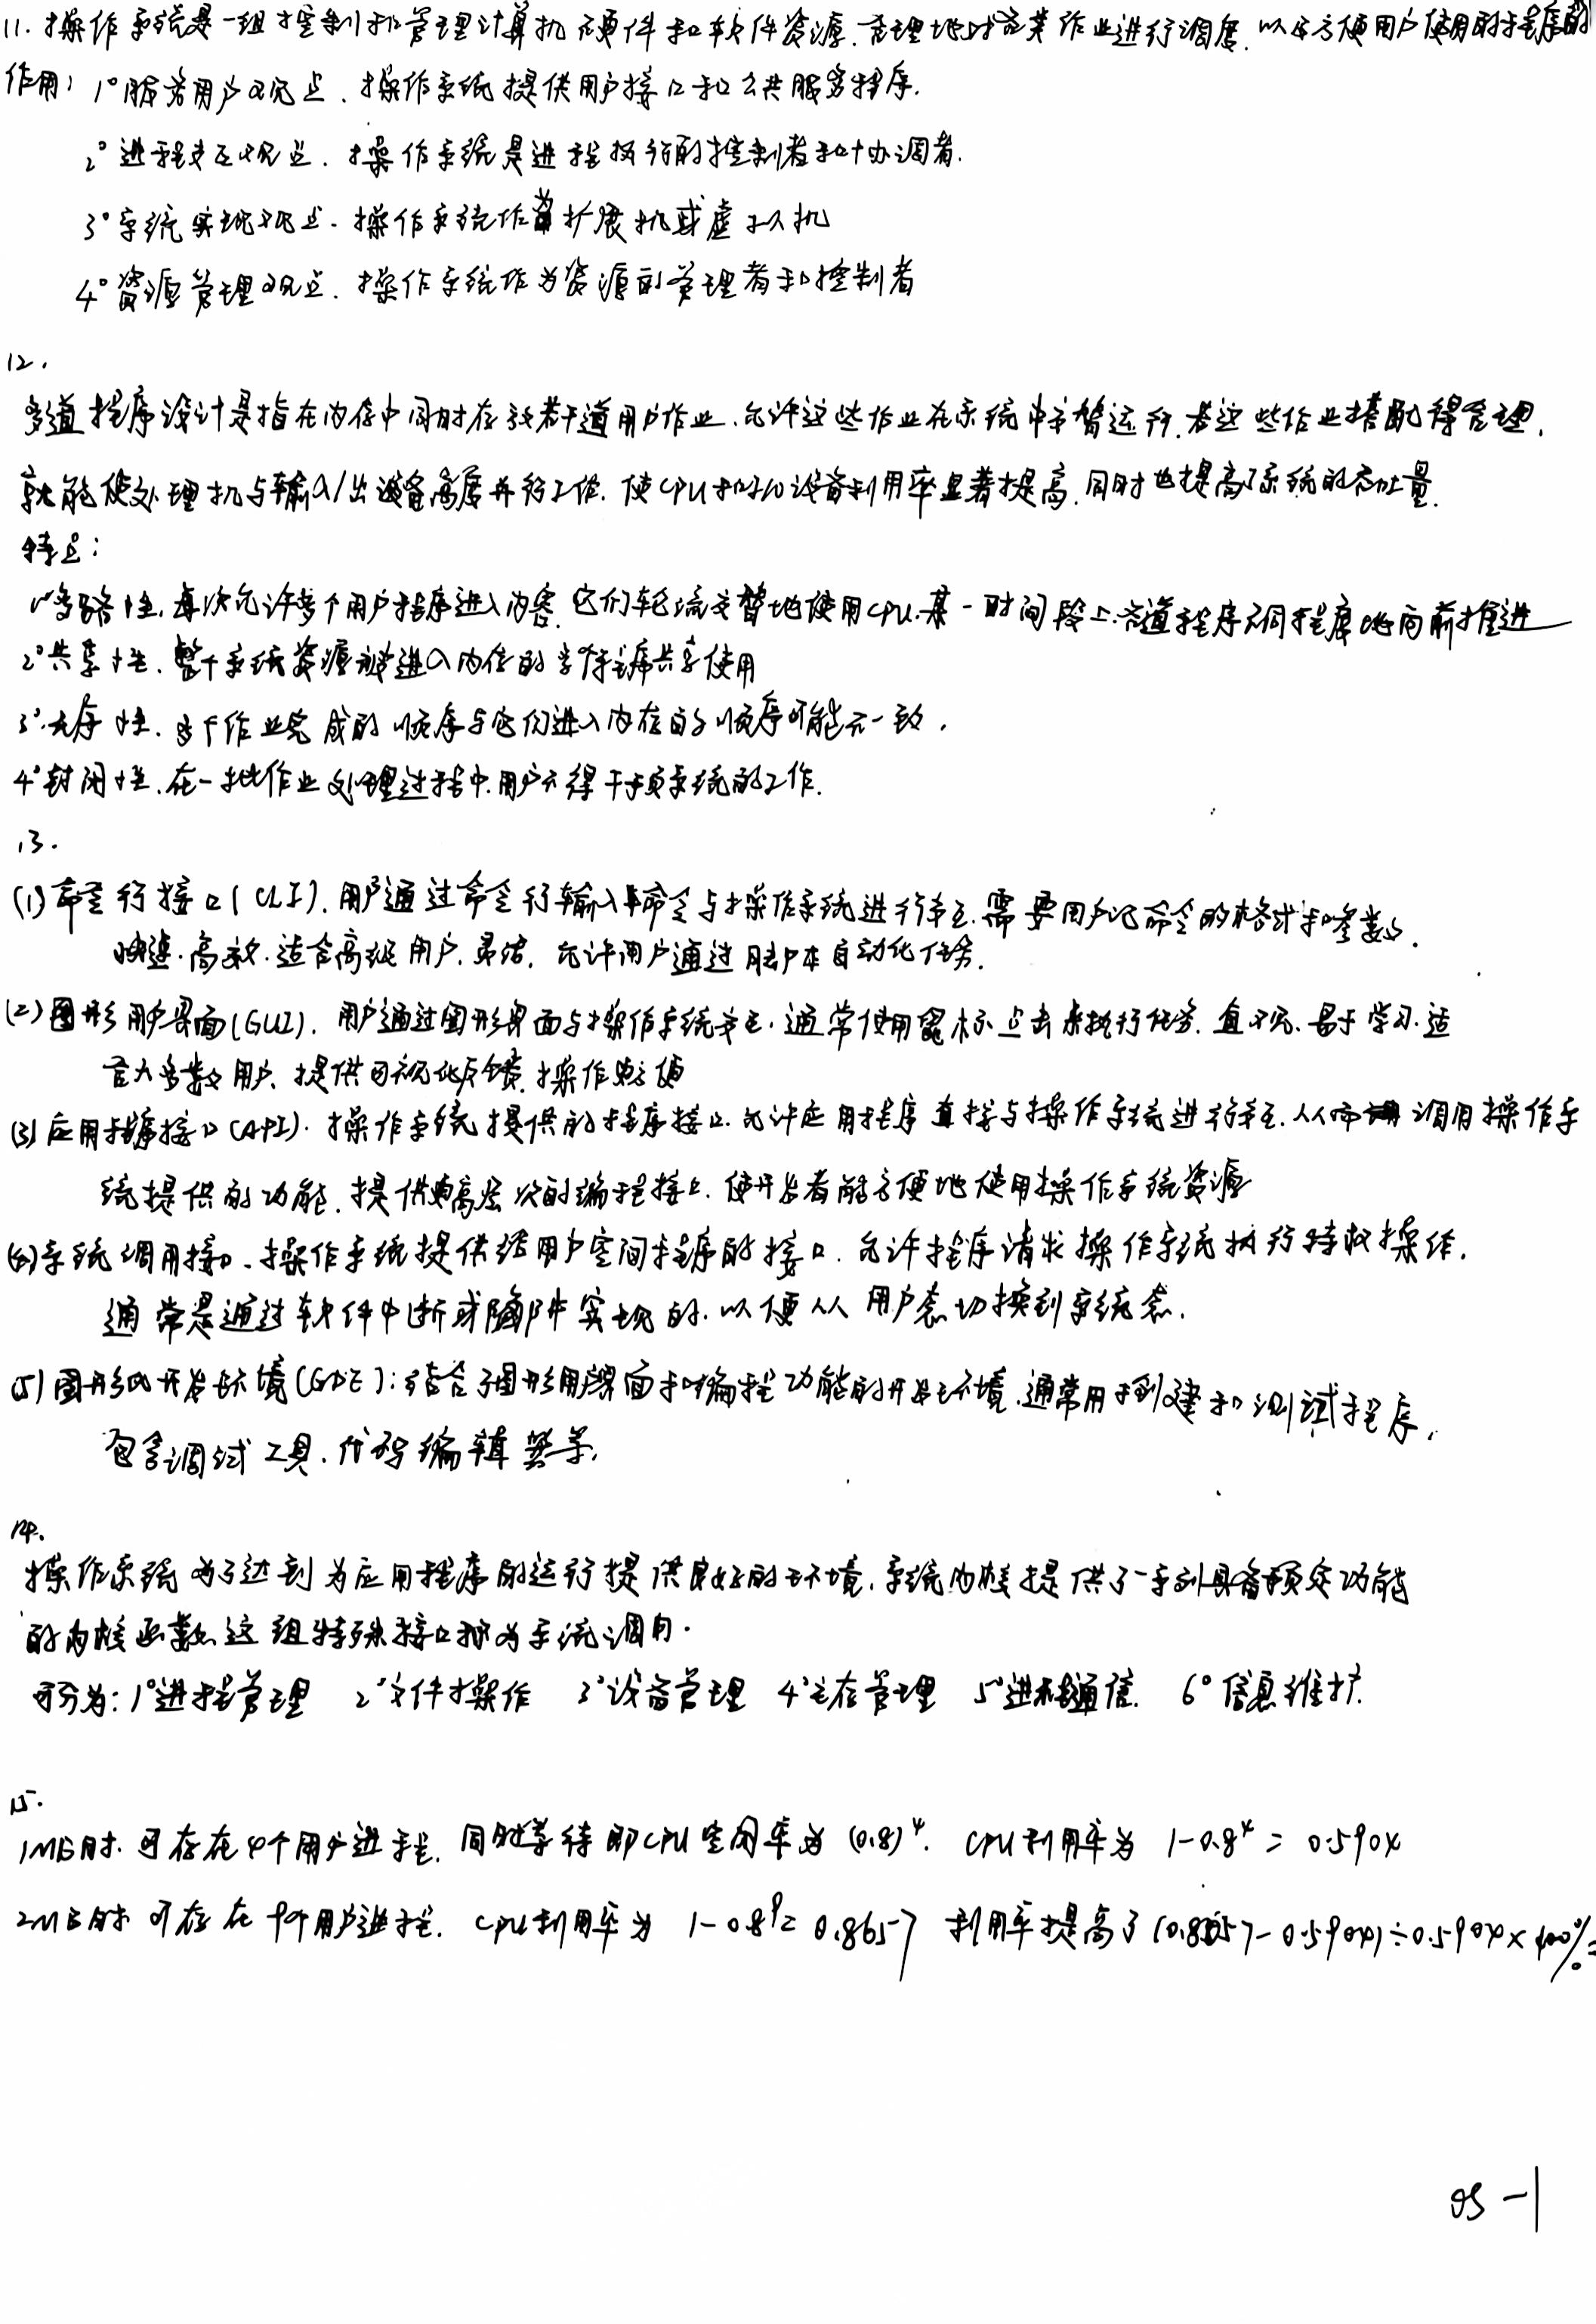 11. 操作系统是一组控制和管理计算机硬件和软件资源,合理地对各类作业进行调度,以及方便用户使用的程序的
作用: 1°服务用户观点,操作系统提供用户接口和公共服务程序.
2°进程交互观点,操作系统是进程执行的控制者和协调者.
3°系统实现观点.操作系统作为扩展机或虚拟机
4°资源管理观点,操作系统作为资源的管理者和控制者
12.
多道程序设计是指在内存中同时存放若干道用户作业,允许这些作业在系统中交替运行.若这些作业搭配得合理,
就能使处理机与输入/出设备高度并行工作.使CPU和I/O设备利用率显著提高,同时也提高了系统的吞吐量.
特点:
1°多路性.每次允许多个用户程序进入内容.它们轮流交替地使用CPU.某一时间段上.各道程序不同程度地向前推进
2°共享性.整个系统资源被进入内存的多个程序共享使用
3°无序性.多个作业完成的顺序与它们进入内存的顺序可能不一致.
4°封闭性.在一批作业处理过程中.用户不得干预系统的工作.
13.
(1)命令行接口(CLI).用户通过命令行输入命令与操作系统进行交互.需要用户记命令的格式和参数.
快速.高效.适合高级用户.灵活.允许用户通过脚本自动化任务.
(2)图形用户界面(GUI).用户通过图形界面与操作系统交互.通常使用鼠标点击来执行任务.直观.易于学习.适
合大多数用户.提供可视化反馈.操作更方便
(3)应用程序接口(API).操作系统提供的程序接口.允许应用程序直接与操作系统进行交互.从而调用操作系
统提供的功能.提供更高层次的编程接口.使开发者能方便地使用操作系统资源
(4)系统调用接口.操作系统提供给用户空间程序的接口.允许程序请求操作系统执行特权操作.
通常是通过软件中断或陷阱实现的.以便从用户态切换到系统态.
(5)图形化开发环境(GDE):结合了图形用户界面和编程功能的开发环境.通常用于创建和测试程序.
包含调试工具.代码编辑器等.
14.
操作系统为了达到为应用程序的运行提供良好的环境.系统内核提供了一系列具备预定功能
的内核函数.这组特殊接口称为系统调用.
可分为:1°进程管理 2°文件操作 3°设备管理 4°主存管理 5°进程通信. 6°信息维护.
15.
1MB时.可存在4个用户进程.同时等待即CPU空闲率为 (0.8)⁴. CPU利用率为 1-0.8⁴ = 0.5904
2MB时 可存在9个用户进程. CPU利用率为 1-0.8⁹= 0.8657 利用率提高了(0.8657-0.5904)÷0.5904×100%=
OS-1